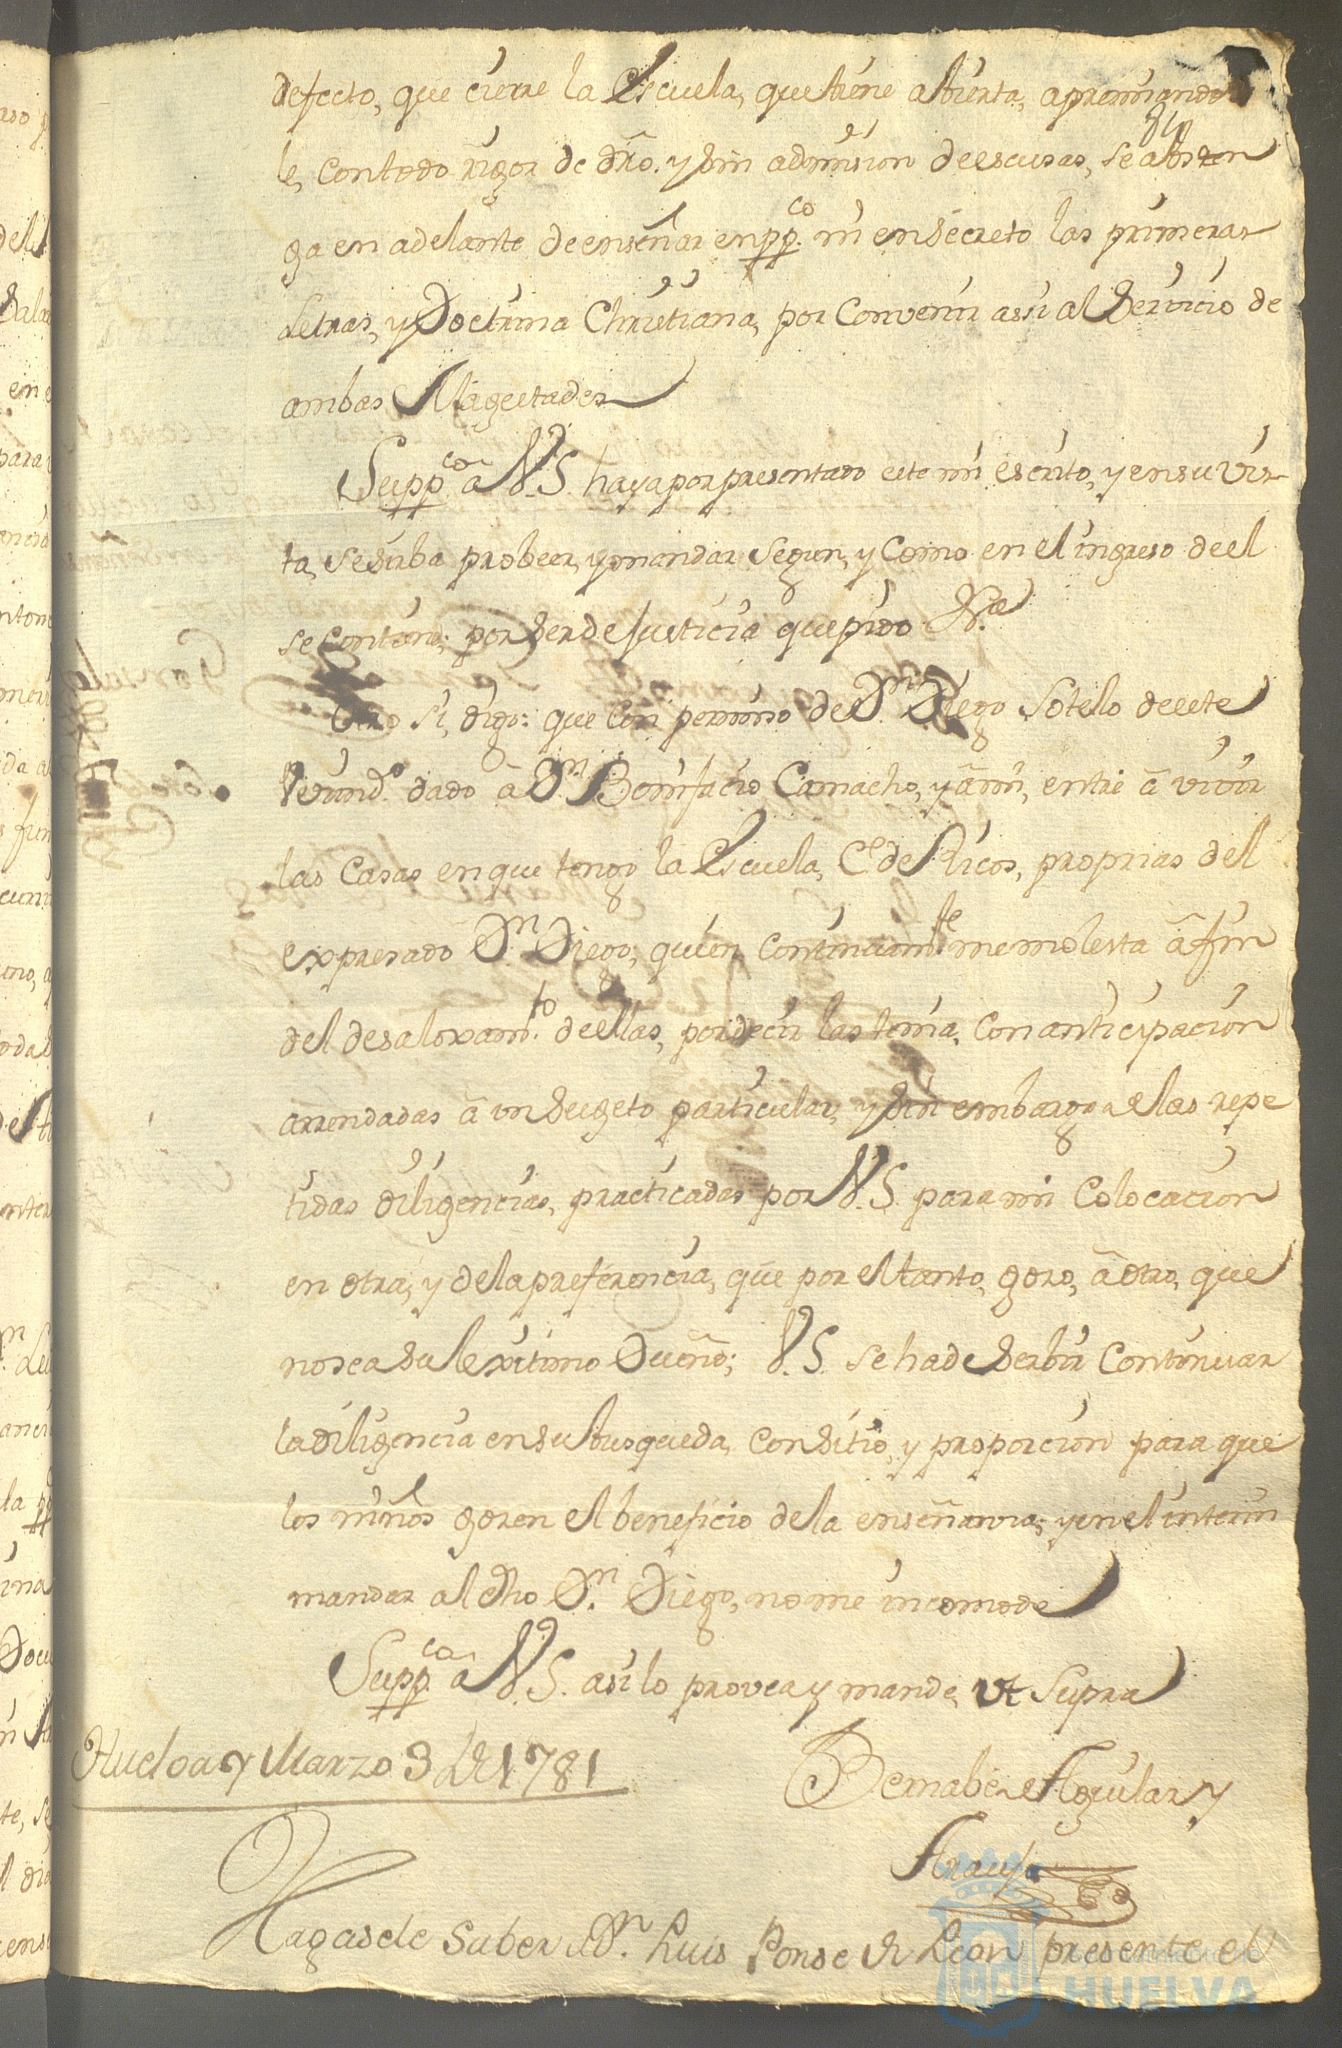 defecto, que cierre la Escuela, que tiene abierta, apremiando
le, con todo rigor de dro. y sin admision de escusas, se absten
ga en adelante de enseñar en pp.co ni en secreto las primeras
Letras, y Doctrina Christiana, por convenir assi al Servicio de
ambas Magestades
Supp.co â V.S. haya por presentado este mi escrito, y en su vis-
ta, se sirba probeer, y mandar segun, y como en el ingreso de el
se contiene; por ser de Justicia que pido
Otro si, digo: que con permiso de D.n Diego Sotello de este
Vecind.o dado â D.n Bonifacio Camacho, y â mi, entré â vivir
las Casas en que tengo la Escuela, C.e de Ricos, proprias del
expresado D.n Diego, quien continuam.te me molesta â fin
del desaloxam.to de ellas, por decir las tenia, con anticipacion
arrendadas â un Sugeto particular, y sin embargo a las repe
tidas diligencias, practicadas por V.S. para mi Colocacion
en otra, y de la preferencia, que por el tanto, gozo, â otro, que
no sea su lexitimo Dueño; V.S. se ha de Serbir Continuar
la diligencia en su busqueda, con sitio, y proporcion para que
los niños gozen el beneficio de la enseñanza; y en el interin
mandar al dho D.n Diego, no me incomode
Supp.co â V.S. asi lo provea y mande, ut Supra
Huelva y Marzo 3 de 1781
Bernabé Aguilar y
Araujo
Hagasele saber a D.n Luis Ponse de Leon presente el
HUELVA